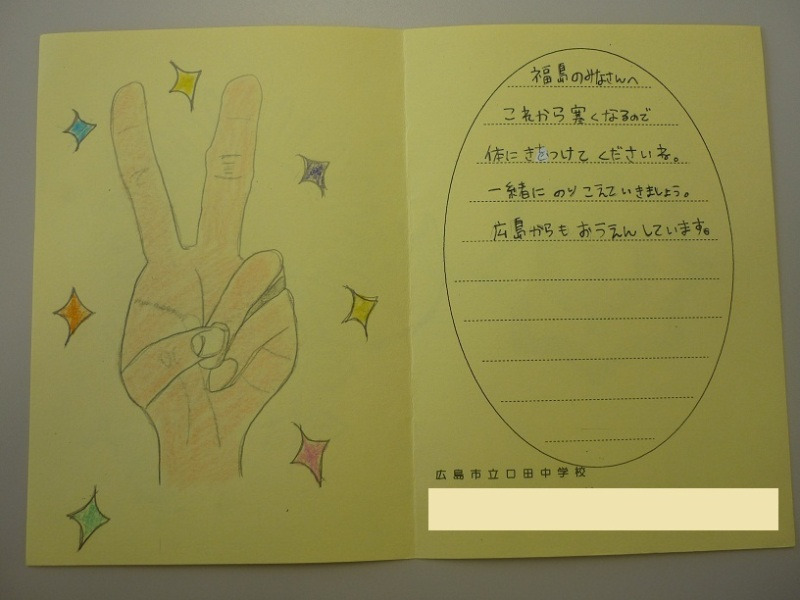 福島のみなさんへ
これから寒くなるので
体にきをつけてくださいね。
一緒にのりこえていきましょう。
広島からもおうえんしています。
広島市立口田中学校